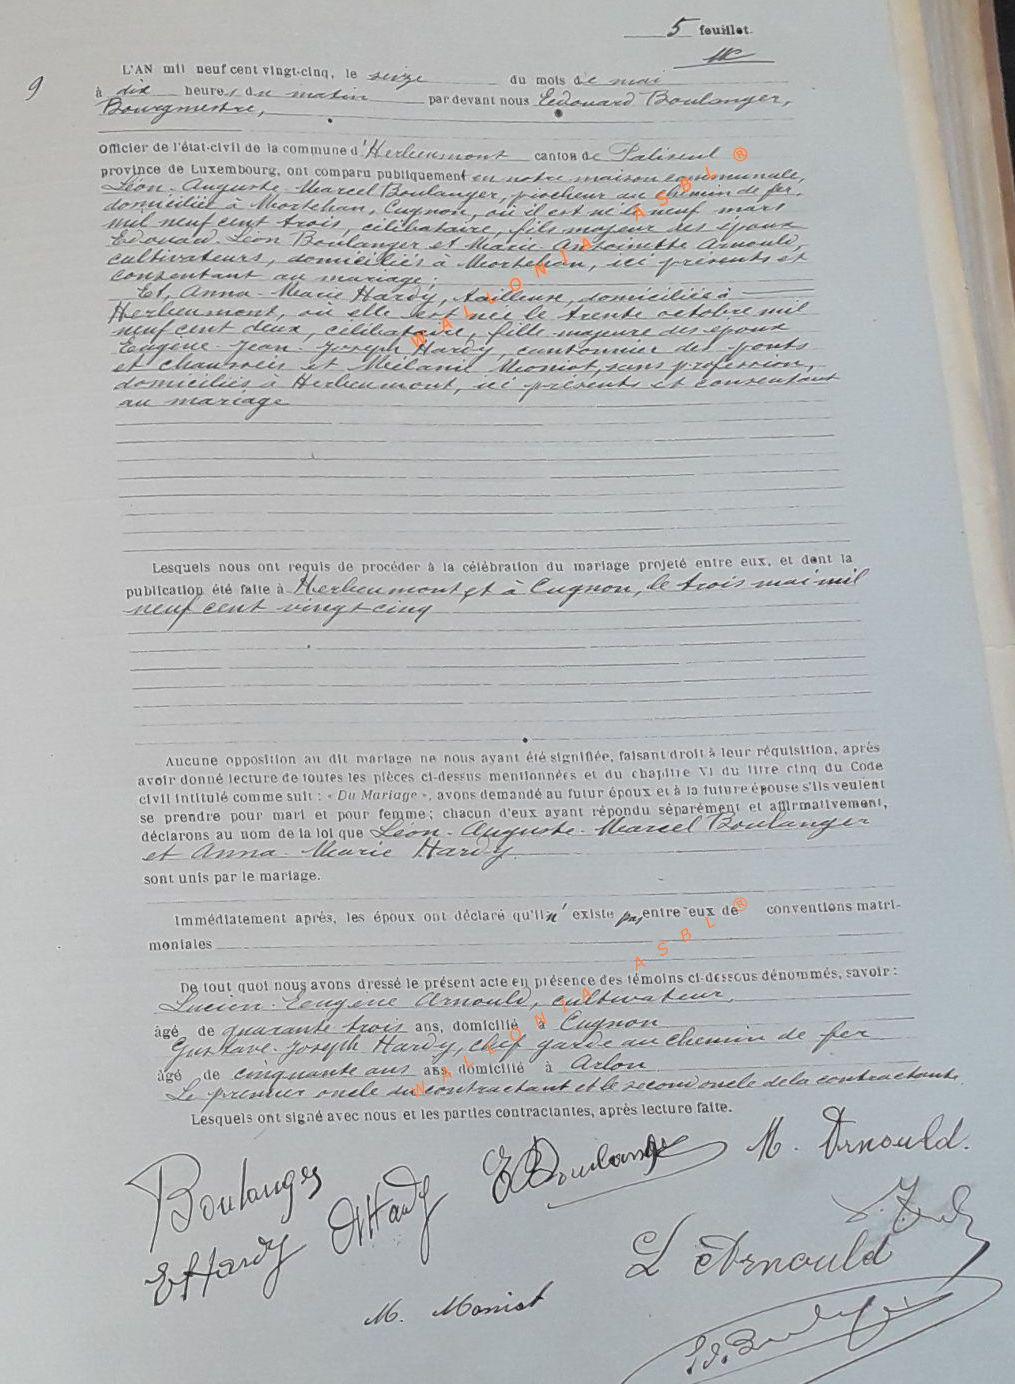 5 feuillet.
9
L'AN mil neuf cent vingt-cinq, le seize du mois de mai
à dix heures du matin par devant nous Edouard Boulanger,
Bourgmestre,
Officier de l'état-civil de la commune d'Herbeumont canton de Paliseul ®
province de Luxembourg, ont comparu publiquement en notre maison communale,
Léon-Auguste-Marcel Boulanger, piocheur au chemin de fer,
domicilié à Mortehan, Cugnon, où il est né le neuf mars
mil neuf cent trois, célibataire, fils majeur des époux
Edouard-Léon Boulanger et Marie-Antoinette Arnould,
cultivateurs, domiciliés à Mortehan, ici présents et
consentant au mariage,
Et, Anna-Marie Hardy, tailleuse, domiciliée à
Herbeumont, où elle est née le trente octobre mil
neuf cent deux, célibataire, fille majeure des époux
Eugène-Jean-Joseph Hardy, cantonnier des ponts
et chaussées et Mélanie Moniot, sans profession,
domiciliés à Herbeumont, ici présents et consentant
au mariage
WALLONIA ASBL
Lesquels nous ont requis de procéder à la célébration du mariage projeté entre eux, et dont la
publication été faite à Herbeumont et à Cugnon, le trois mai mil
neuf cent vingt cinq
Aucune opposition au dit mariage ne nous ayant été signifiée, faisant droit à leur réquisition, après
avoir donné lecture de toutes les pièces ci-dessus mentionnées et du chapitre VI du titre cinq du Code
civil intitulé comme suit : « Du Mariage », avons demandé au futur époux et à la future épouse s'ils veulent
se prendre pour mari et pour femme; chacun d'eux ayant répondu séparément et affirmativement,
déclarons au nom de la loi que Léon-Auguste-Marcel Boulanger
et Anna-Marie Hardy
sont unis par le mariage.
Immédiatement après, les époux ont déclaré qu'il n'existe pas entre eux de ® conventions matri-
moniales
De tout quoi nous avons dressé le présent acte en présence des témoins ci-dessous dénommés, savoir :
Lucien-Eugène Arnould, cultivateur,
âgé de quarante trois ans, domicilié à Cugnon
Gustave-Joseph Hardy, chef garde au chemin de fer
âgé de cinquante ans ans, domicilié à Arlon
Le premier oncle du contractant et le second oncle de la contractante.
WALLONIA ASBL
Lesquels ont signé avec nous et les parties contractantes, après lecture faite.
Boulanger AHardy E Boulanger M. Arnould.
EHardy L Arnould
M. Moniot
Ed. Boulanger